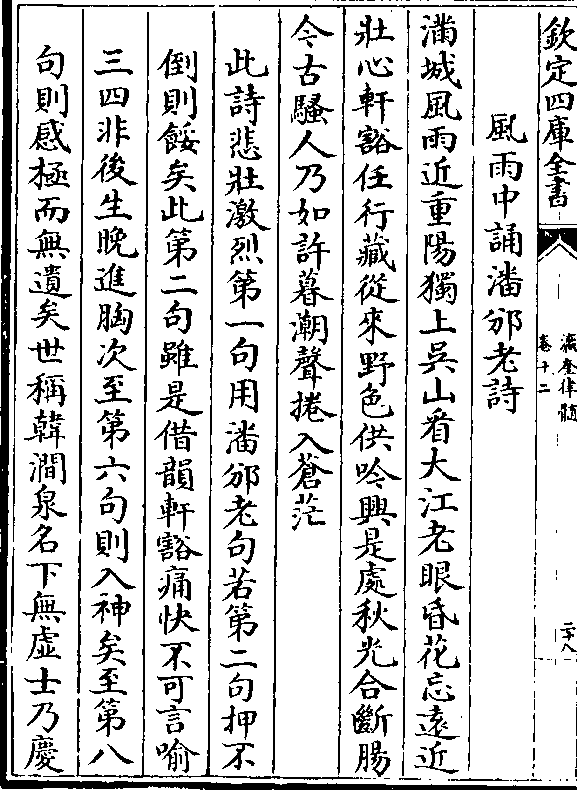 欽定四庫全書
瀛奎律髓
卷十二
二十八
風雨中誦潘邠老詩
滿城風雨近重陽獨上吳山看大江老眼昏花忘遠近
壯心軒豁任行藏從來野色供吟興是處秋光合斷腸
今古騷人乃如許暮潮聲捲入蒼茫
此詩悲壯激烈第一句用潘邠老句若第二句押不
倒則餒矣此第二句雖是借韻軒豁痛快不可言喻
三四非後生晚進胸次至第六句則入神矣至第八
句則感極而無遺矣世稱韓澗泉名下無虛士乃慶